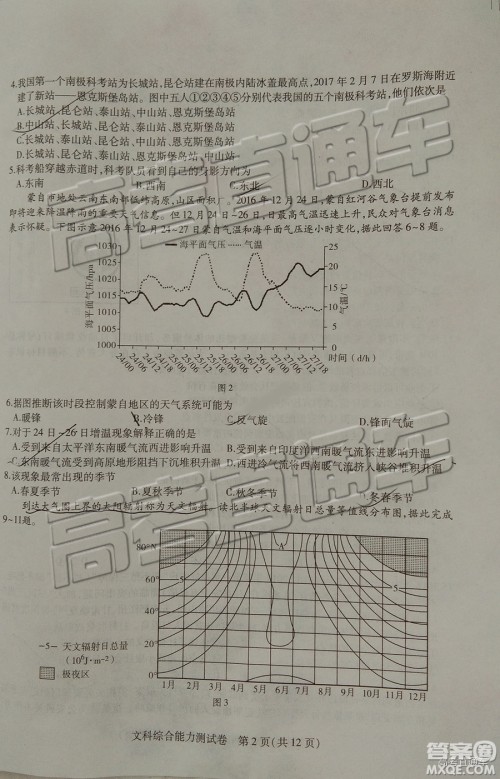 4.我国第一个南极科考站为长城站,昆仑站建在南极内陆冰盖最高点,2017 年 2 月 7 日在罗斯海附近
建了新站——恩克斯堡岛站。图中五人①②③④⑤分别代表我国的五个南极科考站,他们依次是
A.长城站、昆仑站、泰山站、中山站、恩克斯堡岛站
B.中山站、长城站、昆仑站、泰山站、恩克斯堡岛站
C.长城站、泰山站、昆仑站、中山站、恩克斯堡岛站
D.长城站、泰山站、中山站、昆仑站、恩克斯堡岛站
5.科考船穿越赤道时,科考队员看到自己的身影方向为
A.东南 B.西南 C.东北 D.西北
蒙自市地处云南东南部低纬高原,山区面积广。2016 年 12 月 24 日,蒙自红河谷气象台提前发布
即将迎来降温阵雨的重要天气信息。但 12 月 24 日~26 日,日最高气温迅速上升,民众对气象台消息
表示怀疑。下图示意 2016 年 12 月 24~27 日蒙自气温和海平面气压逐小时变化。据此回答 6~8 题。
海平面气压 气温
海平面气压/hpa
1030
1025
1020
1015
1010
1005
1000
25
20
15
10
5
0
气温/℃
24/00 24/06 24/12 24/18 25/00 25/06 25/12 25/18 26/00 26/06 26/12 26/18 27/00 27/06 27/12 27/18
时间(d/h)
图 2
6.据图推断该时段控制蒙自地区的天气系统可能为
A.暖锋 B.冷锋 C.反气旋 D.锋面气旋
7.对于 24 日~26 日增温现象解释正确的是
A.受到来自太平洋东南风暖气流西进影响升温 B.受到来自印度洋西南暖气流东进影响升温
C.东南暖气流受到高原地形阻挡下沉堆积升温 D.西进冷气流沿西南暖气流挤入峡谷堆积升温
8.该现象最常出现的季节
A.春夏季节 B.夏秋季节 C.秋冬季节 D.冬春季节
到达大气圈上界的太阳辐射称为天文辐射。读北半球天文辐射日总量等值线分布图。完成
9~11题。
80°N
60
40
20
0
A
-5- 天文辐射日总量
(10⁶J·m⁻²)
极夜区
1月 2月 3月 4月 5月 6月 7月 8月 9月 10月 11月 12月
图 3
文科综合能力测试卷 第 2 页(共 12 页)
高考直通车
高考直通车
高考直通车
答案圈
MXQE.COM